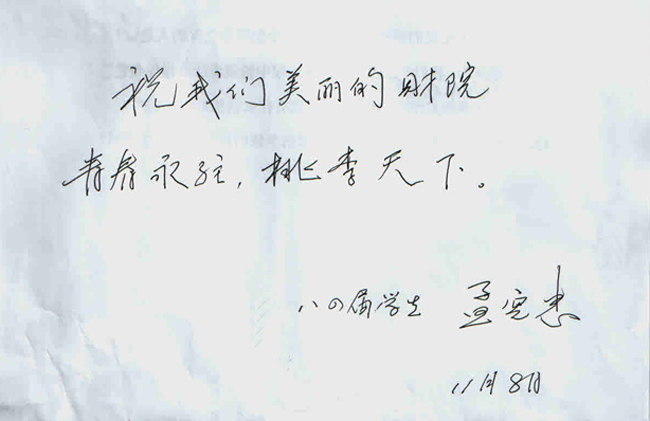 祝我们美丽的财院
青春永驻,桃李天下。
八〇届学生 孟宪忠
11月8日